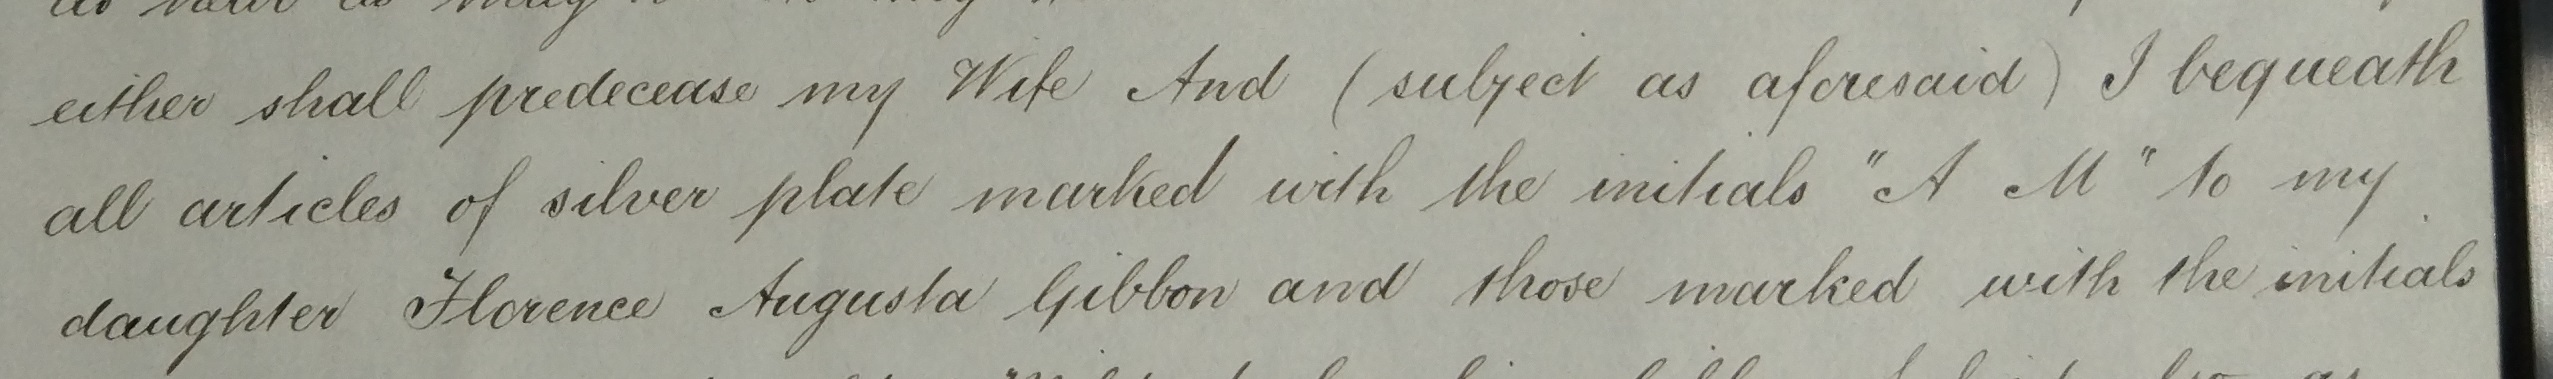 either shall predecease my Wife And (subject as aforesaid) I bequeath
all articles of silver plate marked with the initials "A M" to my
daughter Florence Augusta Gibbon and those marked with the initials